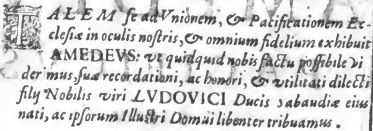 TALEM se ad Vnionem, & Pacificationem Ec-
clesiæ in oculis nostris, & omnium fidelium exhibuit
AMEDEVS: vt quidquid nobis factu possibile vi
dermus, suæ recordationi, ac honori, & vtilitati dilecti
filij Nobilis viri LVDOVICI Ducis Sabaudiæ eius
nati, ac ipsorum Illustri Domui libenter tribuamus.